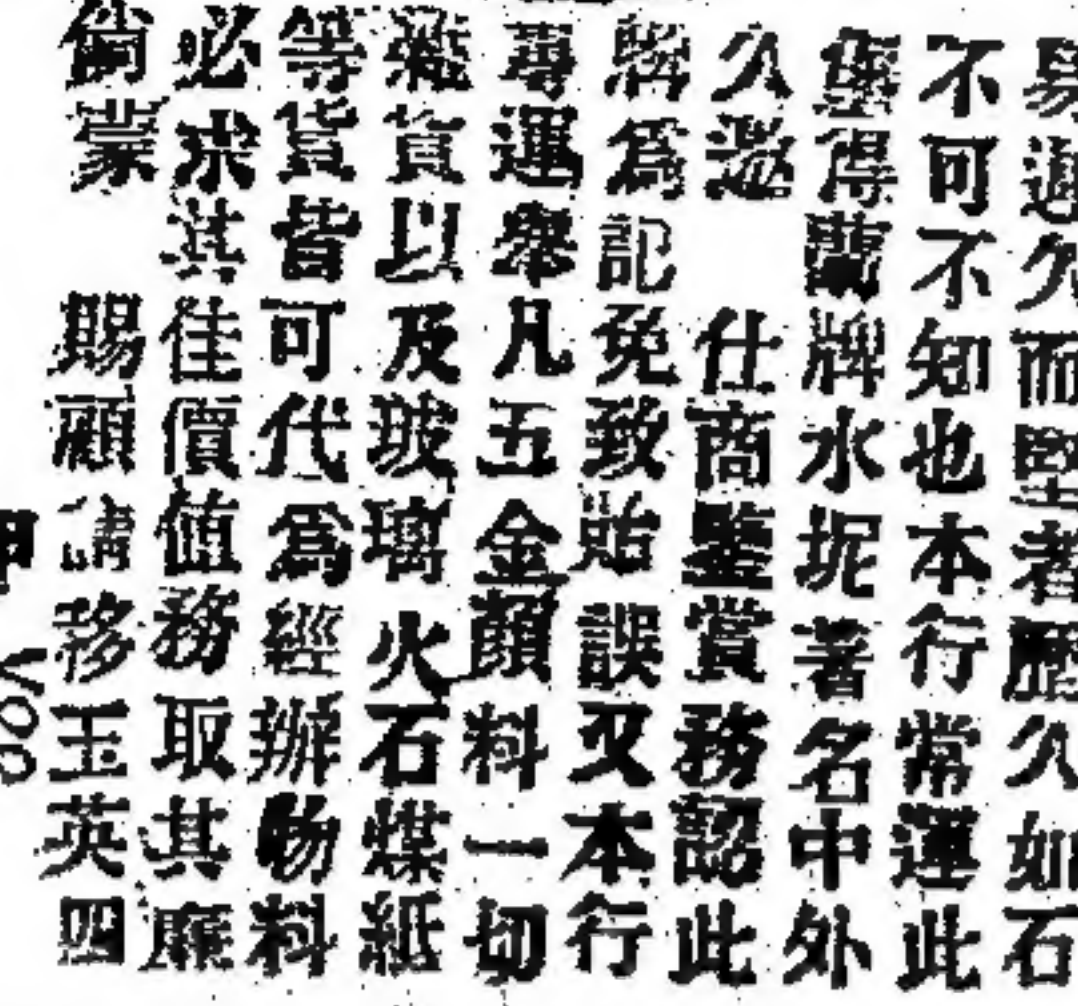 易而堅者歷久如石
不可不知也本行常運此
得蘭牌水坭著名中外
久 仕商鑒賞務認此
牌爲記免致貽誤又本行
專運舉凡五金顏料一切
雜貨以及玻璃火石煤紙
等貨皆可代爲經辦物料
必求其佳價值務取其廉
倘蒙 賜顧請移玉英四